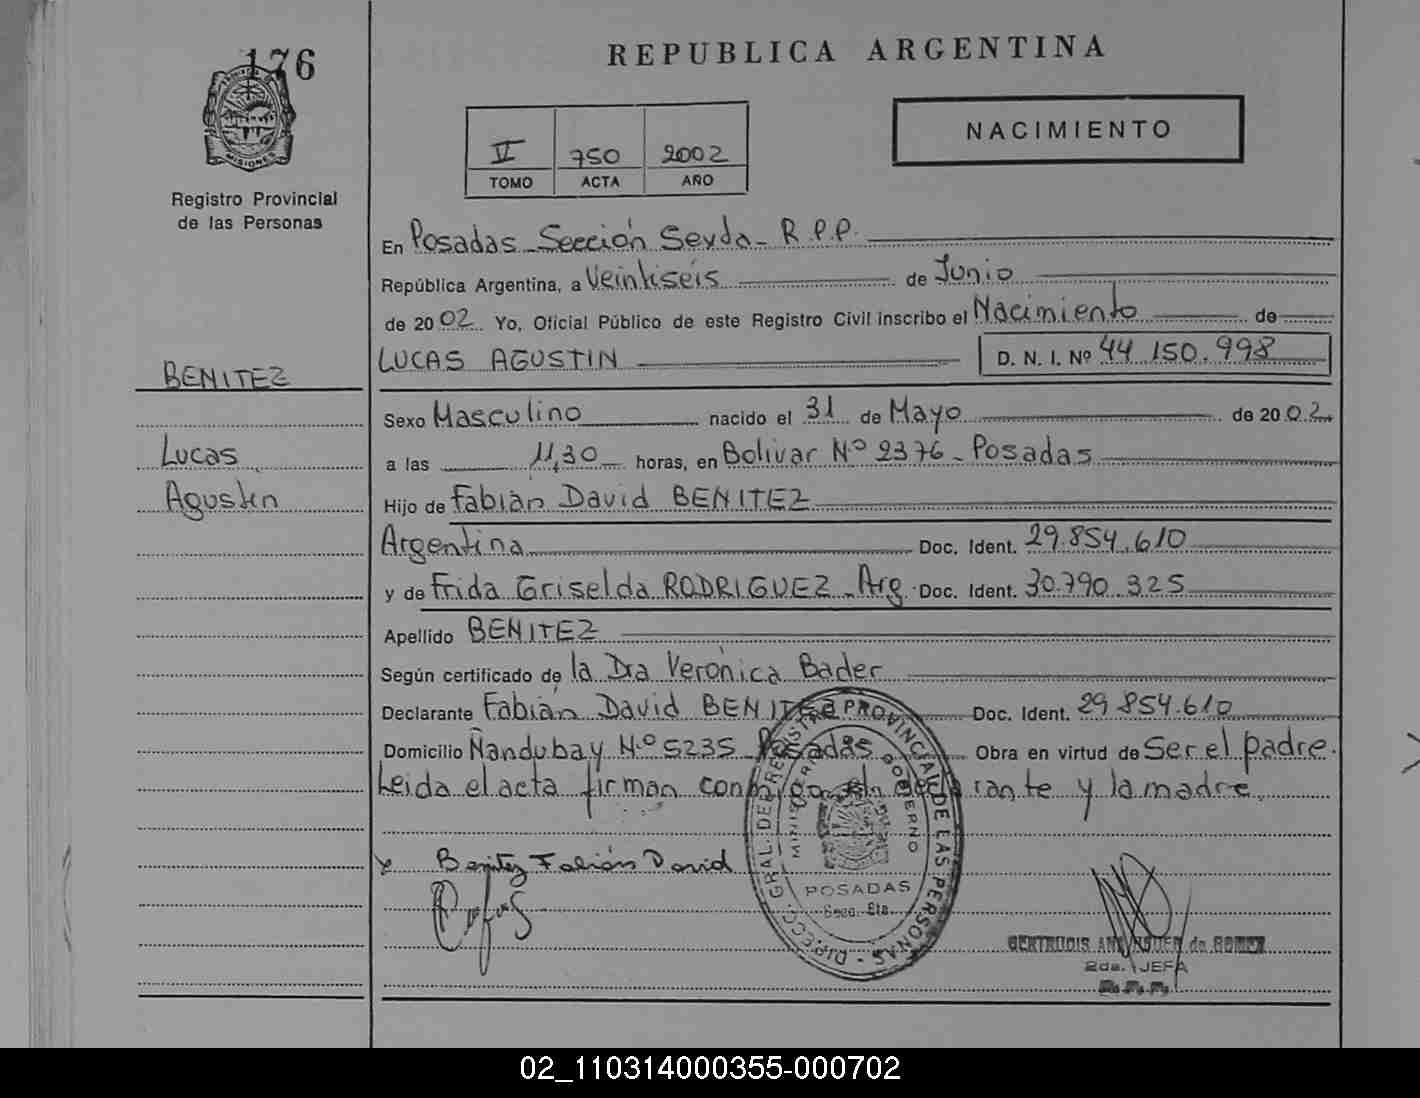 176
MISIONES
Registro Provincial
de las Personas
REPUBLICA ARGENTINA
V 750 2002
TOMO ACTA AÑO
NACIMIENTO
En Posadas - Sección Sexda - R.P.P.
República Argentina, a Veintiseis de Junio
de 2002 Yo, Oficial Público de este Registro Civil inscribo el Nacimiento de
LUCAS AGUSTIN D. N. I. Nº 44.150.998
BENITEZ
Lucas
Agustin
Sexo Masculino nacido el 31 de Mayo de 2002
a las 11,30 horas, en Bolivar Nº 2376 - Posadas
Hijo de Fabián David BENITEZ
Argentina Doc. Ident. 29.854.610
y de Frida Griselda RODRIGUEZ - Arg. Doc. Ident. 30.790.325
Apellido BENITEZ
Según certificado de la Dra Verónica Bader
Declarante Fabián David BENITEZ Doc. Ident. 29.854.610
Domicilio Ñandubay N.º 5235 Posadas Obra en virtud de Ser el padre.
Leida el acta firman conmigo el declarante y la madre.
Benitez Fabián David
DIRECC. GRAL. DE REGISTRO PROVINCIAL DE LAS PERSONAS
MINISTERIO DE GOBIERNO
POSADAS
Secc. 6ta.
GERTRUDIS de GOMEZ
2da. JEFA
R.P.P.
02_110314000355-000702